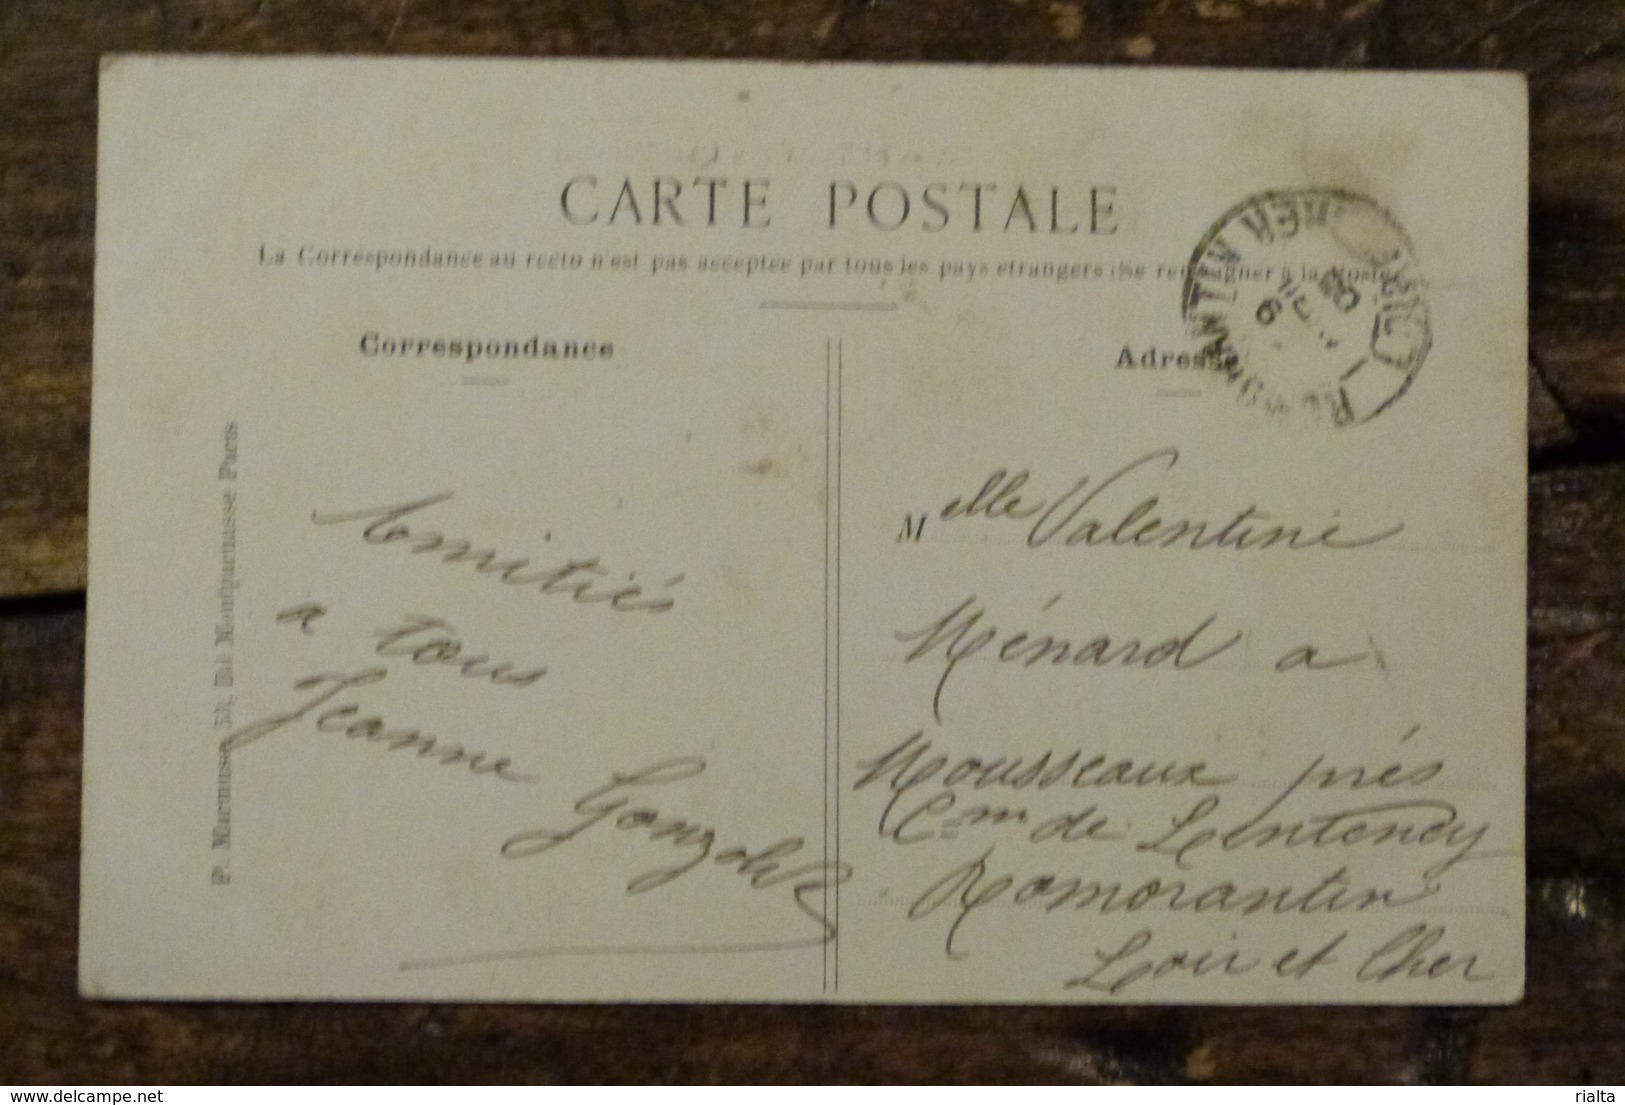 CARTE POSTALE
La Correspondance au recto n'est pas acceptée par tous les pays étrangers (Se renseigner à la Poste)
Correspondance
Adresse
P. Marmuse, 53, Bld Montparnasse Paris
Amitiés
a tous
Jeanne
Gonzalez
Melle Valentine
Ménard a
Mousseaux prés
Cem de Lentenay
Romorantin
Loir et Cher
rialta